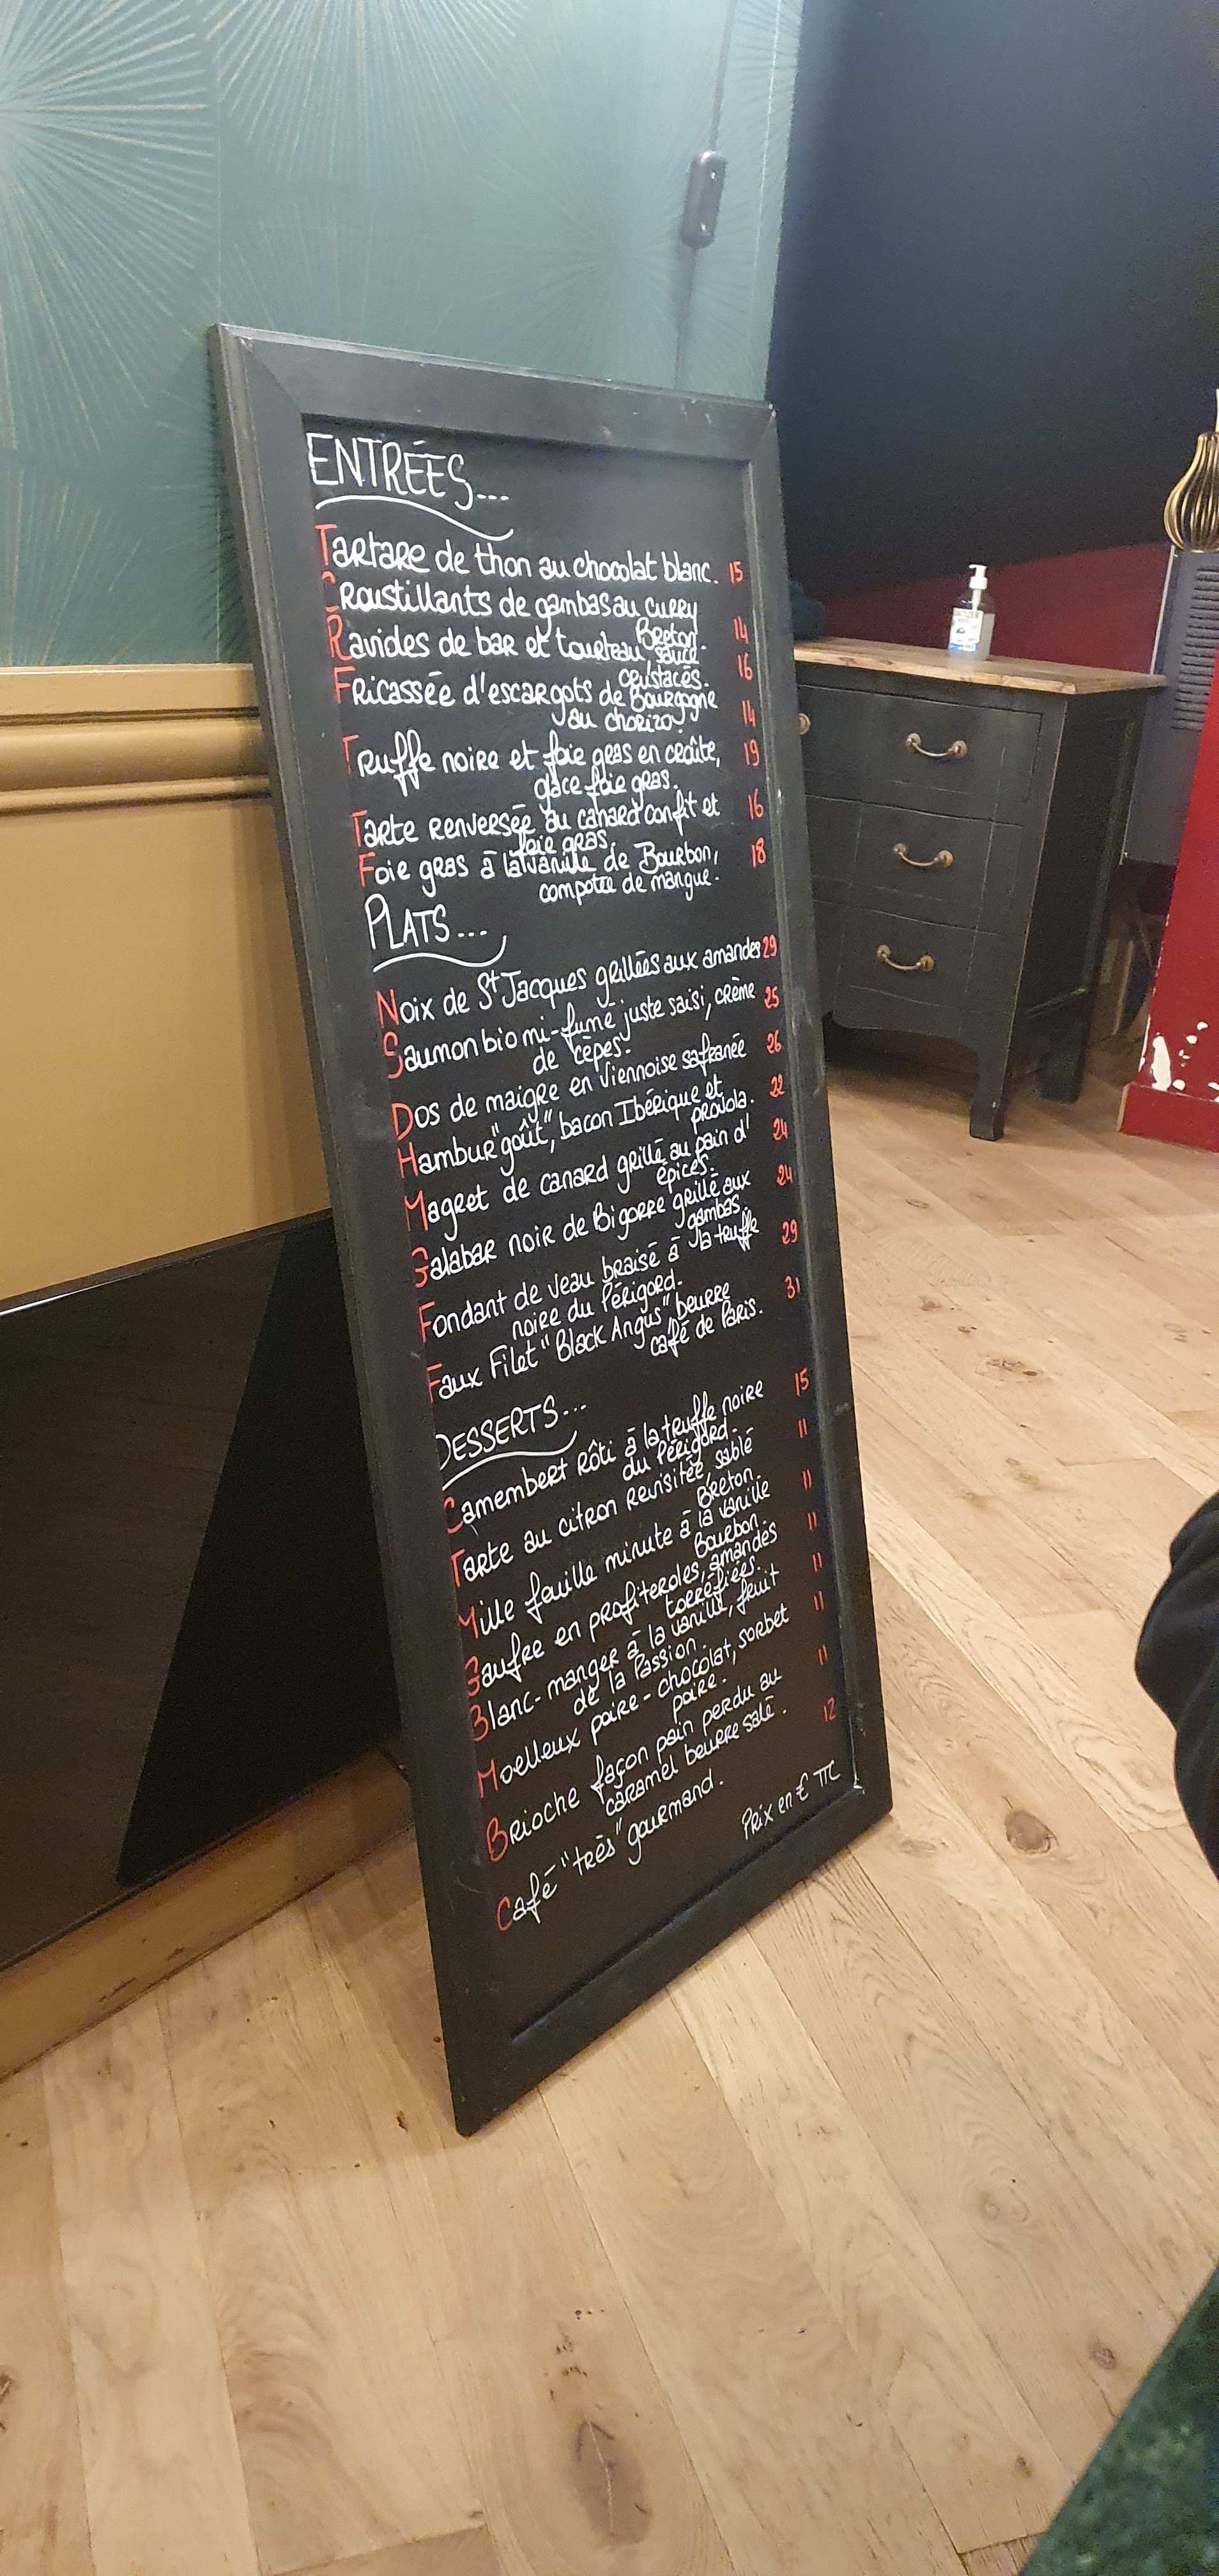 ENTRÉES...
Tartare de thon au chocolat blanc. 15
Croustillants de gambas au curry
Breton. 14
Ravioles de bar et tourteau, sauce
crustacés. 16
Fricassée d'escargots de Bourgogne
au chorizo. 14
Truffe noire et foie gras en croûte, 19
glace foie gras.
Tarte renversée au canard confit et 16
foie gras.
Foie gras à la vanille de Bourbon, 18
compotée de mangue.
PLATS...
Noix de St Jacques grillées aux amandes 29
Saumon bio mi-fumé juste saisi, crème 25
de cèpes.
Dos de maigre en Viennoise safranée 26
Hambur"goût", bacon Ibérique et 22
provola.
Magret de canard grillé au pain d' 24
épices.
Galabar noir de Bigorre grillé aux 24
gambas.
Fondant de veau braisé à la truffe 29
noire du Périgord.
Faux Filet "Black Angus" beurre 31
café de Paris.
DESSERTS...
Camembert rôti à la truffe noire 15
du Périgord.
Tarte au citron revisitée, sablé 11
Breton.
Mille feuille minute à la vanille 11
Bourbon.
Gaufre en profiteroles, amandes 11
torréfiées.
Blanc-manger à la vanille, fruit 11
de la Passion.
Moelleux poire-chocolat, sorbet 11
poire.
Brioche façon pain perdu au 11
caramel beurre salé.
Café "très" gourmand. 12
Prix en € TTC